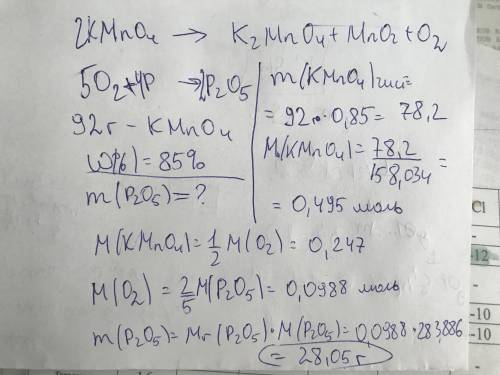 2KMnO4 → K2MnO4 + MnO2 + O2
5O2 + 4P → 2P2O5
92г - KMnO4
W(%) = 85%
m(P2O5) = ?
m(KMnO4)чист =
= 92г · 0,85 = 78,2
M(KMnO4) = 78,2 / 158,034 =
= 0,495 моль
M(KMnO4) = 1/2 M(O2) = 0,247
M(O2) = 2/5 M(P2O5) = 0,0988 моль
m(P2O5) = Mr(P2O5) · M(P2O5) = 0,0988 · 283,886
= 28,05г
Cl
-
-12
-
-10
-10